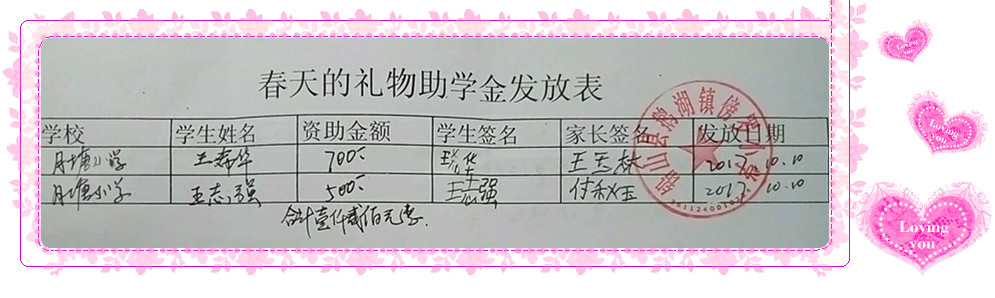 春天的礼物助学金发放表
学校 学生姓名 资助金额 学生签名 家长签名 发放日期
月塘小学 王希华 700 王 华 2017.10.10
月塘小学 王志强 500 王志强 付秋玉 2017.10.10
合计壹仟贰佰元
铅山县鹅湖镇傍
Loving you
Loving you
Loving you